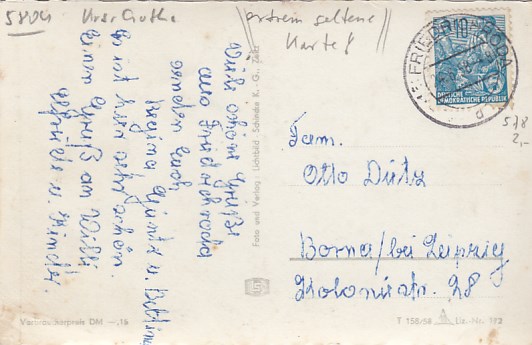 5804 Krs. Gotha
extrem seltene
Karte!
FRIEDRICHRODA
10
DEUTSCHE
DEMOKRATISCHE REPUBLIK
d
518
2,-
Viele schöne Grüße
aus Friedrichroda
senden Euch
Heinz, Günter u.
Es ist hier sehr schön.
einen Gruß an Willi
Elfriede u. Kinder.
Foto und Verlag: Lichtbild-Schincke K.-G., Zeitz
Fam.
Otto Dietz
Borna/bei Leipzig
Kolonnistr. 28
Verbraucherpreis DM —,15
T 158/58 Liz.-Nr. 192